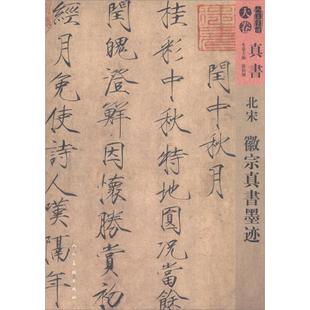 大卷
真書
北宋 徽宗真書墨迹
閏中秋月
桂彩中秋特地圓況當餘
閏魄澄鮮因懷勝賞初
經月免使詩人嘆隔年